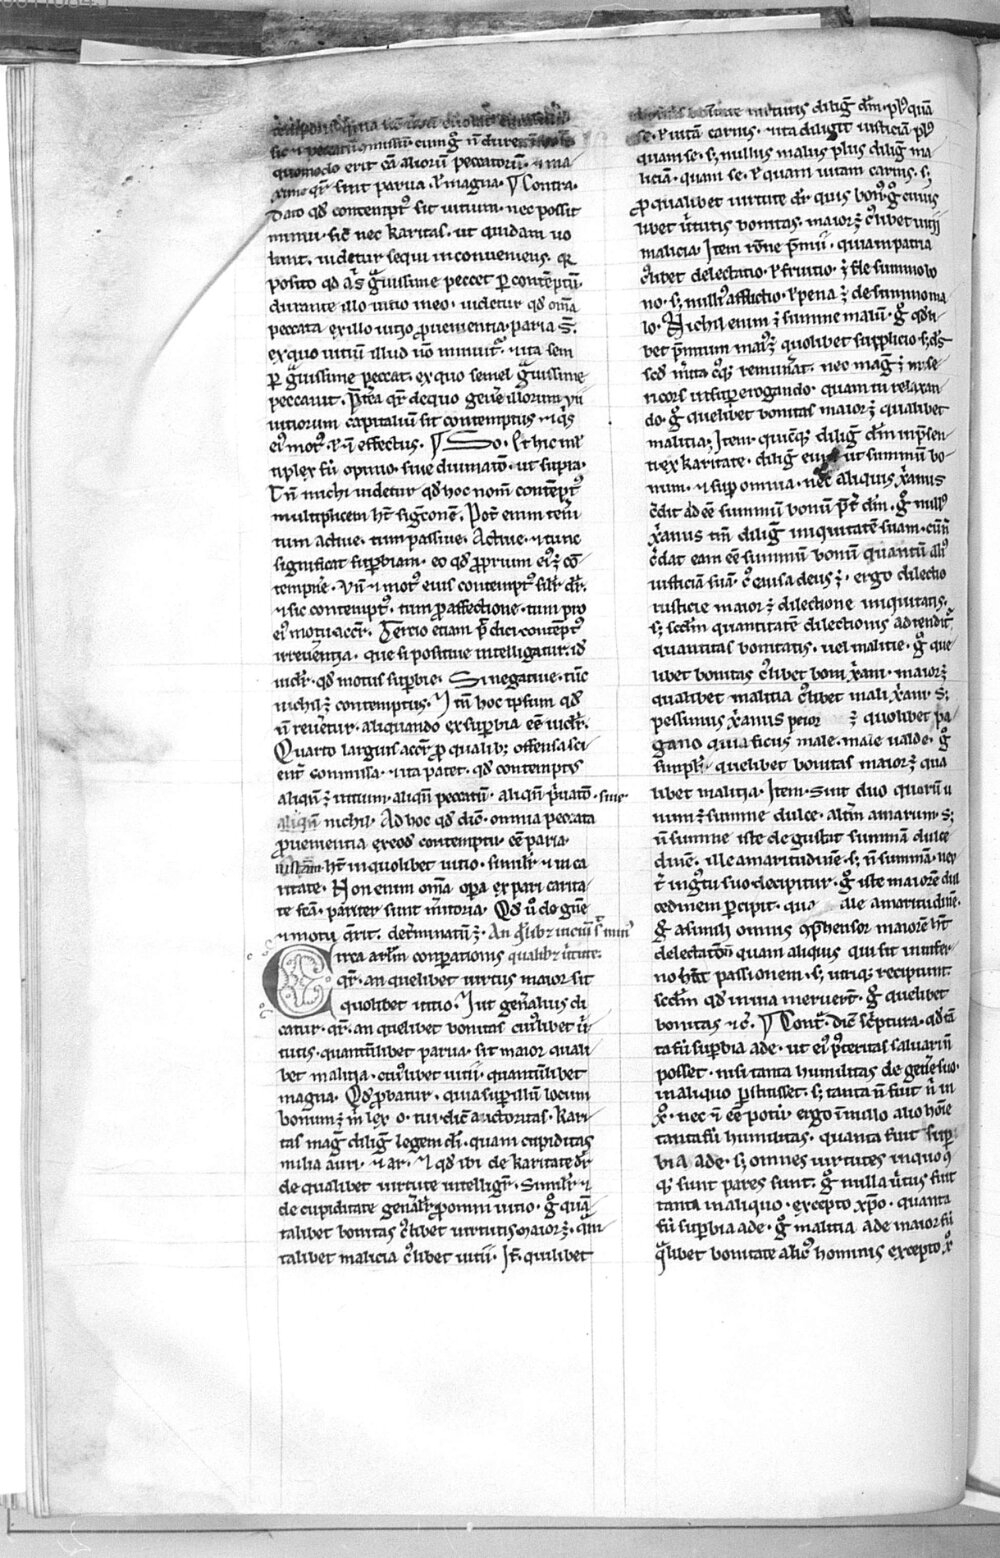 sic ⁊ peccatū omissiōīs. cum g̃ ñ duret
quomodo erit cā aliorum peccatorū. ⁊ ma
xime qr̃ sint parua ł magna. ¶ Contra.
Dato qđ contempt᷒ sit uitium. nec possit
minui. sič nec karitas. ut quidam uo
lunt. uidetur sequi inconueniens. qr
posito qđ aliq̃s g̃uissime peccet ꝑ contēptū.
durante illo uitio meo. uidetur qđ om̃a
peccata ex illo uitio ꝓuenientia paria st̃.
ex quo uitiū illud ño minuit᷑. ⁊ ita sem
ꝑ g̃uissime peccat. ex quo semel g̃uissime
peccauit. P̃tea qr̃ de quo geñe illorum vii
uitiorum capitaliū sit contemptus ⁊ qͥs
ei᷒ mot᷒. ⁊ ĩ effectus. ¶ So. Et hic m̃l
tiplex fũ opinio. siue diuinatō. ut supͣ.
Tñ michi uidetur qđ hoc nom̃ contēpt᷒
multiplicem ħt sig̃conē. Pot̃ enim teñi
tum actiue. tum passiue. Actiue. ⁊ tunc
significat suꝑbiam. eo qđ ꝓprium ei᷒ ꝫ cō
tempn̄e. Vñ ⁊ mot᷒ eius contempt᷒ siłr dr̃.
⁊ sic contempt᷒. tum ꝓ affectione. tum pro
ei᷒ motu acc̃r. Tercio etiam p̃ dici contēpt᷒
irreuẽntia. que si positiue intelligatur. id
uidr̃. qđ motus suꝑbie. Si negatiue. tūc
nichil ꝫ contemptus. ⁊ tñ hoc ipsum qđ
ñ reuẽretur. aliquando ex suꝑbia eē uidr̃.
Quarto largius acc̃r ꝓ qualibꝫ offensa sci
ent̃ commissa. ⁊ ita patet. qđ contemptꝰ
aliqñ ꝫ uitium. aliqñ peccatū. aliqñ p̃uatō. siue
aliqñ nichil. Ad hoc qđ dic̃o. omnia peccata
ꝓuenientia ex eođ contemptu eē paria.
ħt in quolibet uitio. simił̃r ⁊ in ca
ritate. Non enim om̃a oꝑa ex pari carita
te fc̃a. pariter sunt m̃itoria. Qđ ũ de geñe
⁊ motu q̃rit. det̃minatū ꝫ. An qͥlibꝫ uiciū s̃ min᷒
Circa art̃lm conꝑationis qualibꝫ ũtute.
qr̃. an quelibet uirtus maior sit
quolibet uitio. ⁊ ut geñalius di
catur. qr̃. an quelibet bonitas cui᷒libet ũ
tutis. quantūlibet parua. sit maior quali
bet malitia. cui᷒libet uitii. quantūlibet
magna. Qđ ꝓbatur. quia suꝑ illū locum
bonum ꝫ m̃ lex o. tui. dic̃ auctoritas. kari
tas mag̃ dilig̃ legem di. quam cupiditas
milia auri. ⁊ ar. ⁊ qđ ibi de karitate dr̃
de qualibet uirtute intelligr̃. Similr̃ ⁊
de cupiditate geñalr̃ ꝓ omni uitio. g̃ quā
talibet bonitas c᷒libet uirtutis maior ꝫ. qũ
talibet malicia c᷒libet uitii. It̃. quilibet
bonitate uirtutis dilig̃ dm̃. pl᷒ quā
se. ł uitā carnis. ⁊ ita diligit iusticiā pl᷒
quam se. sꝫ nullus malus plus dilig̃ ma
liciā. quam se. ł quam uitam carnis. sꝫ
ꝓ qualibet uirtute dr̃ quis bon᷒. g̃ cuius
libet ũtutis bonitas. maior ꝫ c᷒libet uitii
malicia. Item rōne p̃mii. quia in patria
c᷒libet delectatio. ł fruitio. ꝫ sił̃e summo bo
no. sꝫ null᷒ afflictio. ł pena ꝫ de summo ma
lo. Nichil enim ꝫ summe malū. g̃ qđli
bet p̃mium mai᷒ ꝫ quolibet supplicio. sꝫ đs
scđ m̃ita c᷒qꝫ remuñat. nec mag̃ ꝫ mise
ricors in suꝑerogando. quam in relaxan
do. g̃ quelibet bonitas maior ꝫ qualibet
malitia. Item. quic᷒qꝫ dilig̃ dm̃ in p̃sen
ti ex karitate. dilig̃ eum ut summū bo
num. ⁊ suꝑ omnia. nec aliquis x̃anus
c̃dit ađ eē summū bonū p̃t̃ dm̃. g̃ null᷒
x̃anus tm̃ dilig̃ iniquitatē suam. cū ñ
c̃dat eam eē summū bonū quantū ali᷒
iusticiam suā. c᷒ causa deus ꝫ. ergo dilectio
iusticie maior ꝫ dilectione iniquitatis.
sꝫ scđm quantitatē dilectionis attendit᷑
quantitas bonitatis. uel malitie. g̃ que
libet bonitas c᷒libet boni x̃ani. maior ꝫ
qualibet malitia c᷒libet mali x̃ani. sꝫ
pessimus x̃anus peior ꝫ quolibet pa
gano quia ficus male. male ualde. g̃
simpłr. quelibet bonitas maior ꝫ qua
libet malitia. Item. Sint duo quorū u
num ꝫ summe dulce. alt̃m amarum. sꝫ
ñ summe iste de gustat summā dulce
dinē. ille amaritudinē. sꝫ ñ summā. nec
t̃ in gustu suo decipitur. g̃ iste maiorē dul
cedinem ꝑcipit. quam ille amaritudinē.
g̃ a simili omnis ꝯp̃hensor maiorē ħt
delectatōē quam aliquis qui sit in infer
no ħet passionem. sꝫ utriqꝫ recipiunt
scđm qđ in uia meruer̃t. g̃ quelibet
bonitas ⁊c̃. ¶ Cont᷑. dic̃ sc̃ptura. qđ tā
ta fũ suꝑbia ade. ut ei᷒ posteritas saluari ñ
posset. nisi tanta humilitas de geñe suo.
in aliquo ꝑstitisset. sꝫ tanta ñ fuit ñ in
x̃. nec ĩ eē potũ. ergo ĩ nullo alio hoīe
tanta fũ humilitas. quanta fuit suꝑ
bia ade. sꝫ omnes uirtutes in quo᷒
qꝫ sunt pares sunt. g̃ nulla ũtus fuit
tanta in aliquo. excepto xp̃o. quanta
fũ suꝑbia ade. g̃ malitia ade maior fũ
q̃libet bonitate alic᷒ hominis excepto x̃